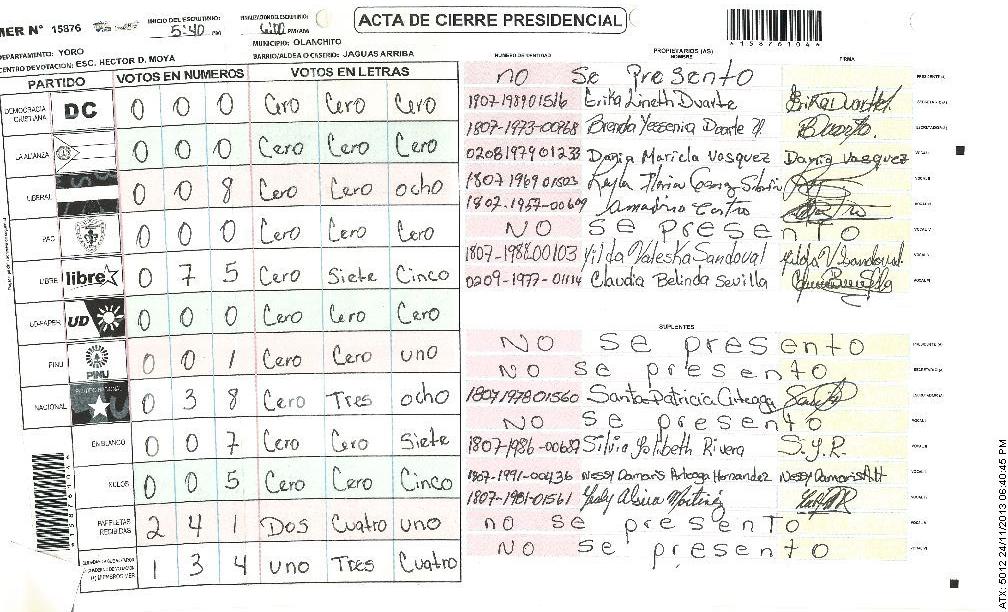 ACTA DE CIERRE PRESIDENCIAL
MER N° 15876
INICIO DEL ESCRUTINIO: 5:40 PM
6:00 PM/AM
*158761044*
DEPARTAMENTO: YORO
MUNICIPIO: OLANCHITO
CENTRO DE VOTACION: ESC. HECTOR D. MOYA
BARRIO/ALDEA O CASERIO: JAGUAS ARRIBA
PARTIDO VOTOS EN NUMEROS VOTOS EN LETRAS
DEMOCRACIA CRISTIANA DC 0 0 0 Cero Cero Cero
LA ALIANZA 0 0 0 Cero Cero Cero
LIBERAL 0 0 8 Cero Cero ocho
PAC 0 0 0 Cero Cero Cero
LIBRE libre 0 7 5 Cero Siete Cinco
UD-FAPER UD 0 0 0 Cero Cero Cero
PINU PINU 0 0 1 Cero Cero uno
NACIONAL 0 3 8 Cero Tres ocho
EN BLANCO 0 0 7 Cero Cero Siete
NULOS 0 0 5 Cero Cero Cinco
PAPELETAS RECIBIDAS 2 4 1 Dos Cuatro uno
1 3 4 uno Tres Cuatro
NUMERO DE IDENTIDAD PROPIETARIOS (AS) NOMBRE FIRMA
NO Se Presento
1807-1989 01516 Erika Lineth Duarte Erika Duarte
1807-1973-00968 Brenda Yessenia Duarte
0208197901233 Dania Maricla Vasquez Dania Vasquez
1807 1969 01503
1807-1957-00609 Castro
NO se presento
1807-1988 00103 Yilda Valeska Sandoval Yilda V Sandoval
0209-1977-01114 Claudia Belinda Sevilla
SUPLENTES
NO se presento
NO se presento
1807 1978 01560 Santa Patricia Arteaga
NO se presento
1807-1986-00687 Silvia Yolibeth Rivera S.Y.R.
1807-1991-00436 Nessy Damaris Arteaga Hernandez Nessy Damaris A.H
1807-1981-01561 Martinez
no se presento
NO se presento
*158761044*
ATX: 5012 24/11/2013 06:40:45 PM